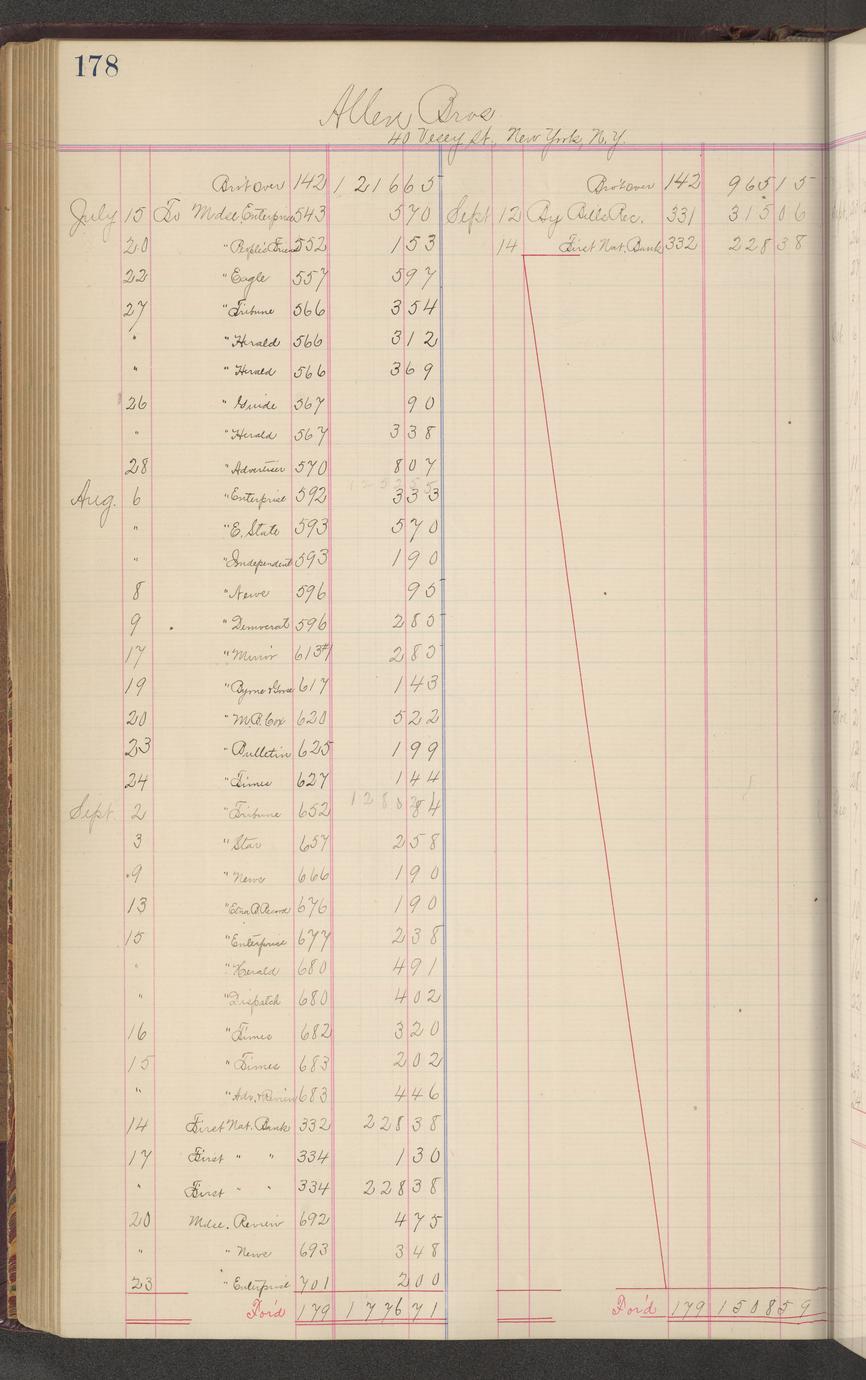 178
Allen Bros
40 Vesey St., New York, N.Y.
Bro't over 142 1216 65 Bro't over 142 965 15
July 15 To Mdse. Enterprise 543 5 70 Sept 12 By Bills Rec. 331 315 06
20 " People's Friend 552 1 53 14 First Nat. Bank 332 228 38
22 " Eagle 557 5 97
27 " Tribune 566 3 54
" " Herald 566 3 12
" " Herald 566 3 69
26 " Guide 567 90
" " Herald 567 3 38
28 " Advertiser 570 8 07
Aug. 6 " Enterprise 592 3 33
" " E. State 593 5 70
" " Independent 593 1 90
8 " News 596 95
9 " Democrat 596 2 85
17 " Mirror 613 2 85
19 " Byrne & 617 1 43
20 " M.B. Cox 620 5 22
23 " Bulletin 625 1 99
24 " Times 627 1 44
Sept. 2 " Tribune 652 84
3 " Star 657 2 58
9 " News 666 1 90
13 " Record 676 1 90
15 " Enterprise 677 2 38
" " Herald 680 4 91
" " Dispatch 680 4 02
16 " Times 682 3 20
15 " Times 683 2 02
" " Adv. & Review 683 4 46
14 First Nat. Bank 332 228 38
17 First " " 334 1 30
" First " " 334 228 38
20 Mdse. Review 692 4 75
" " News 693 3 48
23 " Enterprise 701 2 00
For'd 179 1776 71 For'd 179 1508 59